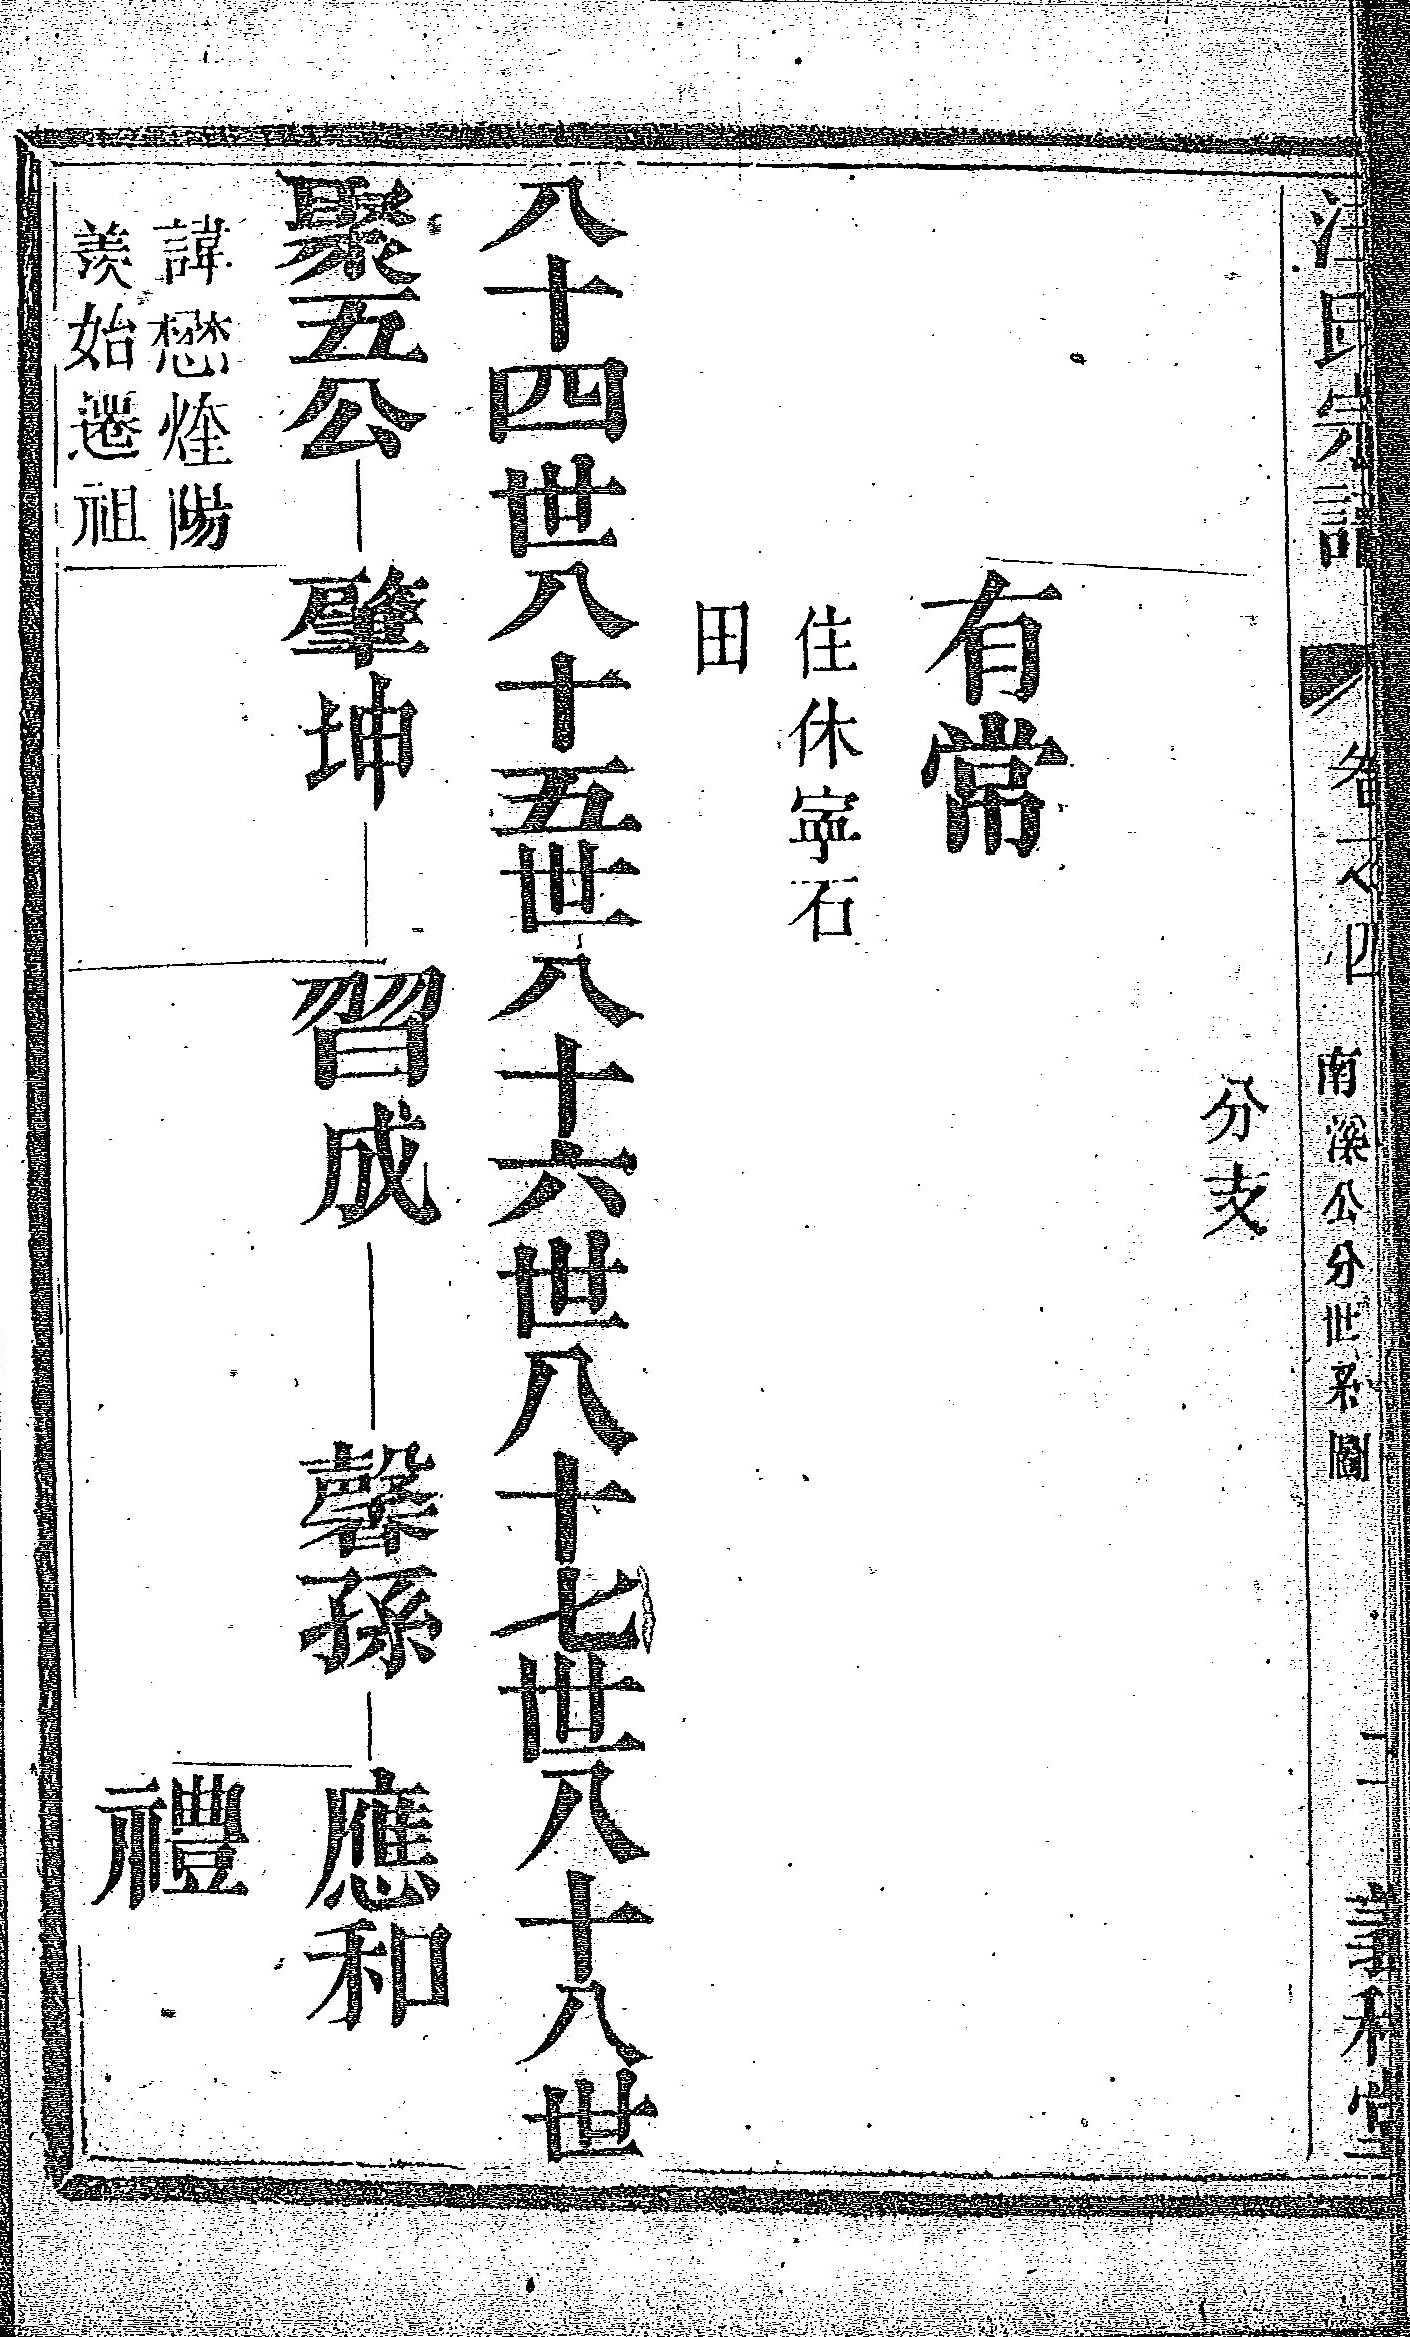 汪氏宗譜 卷之四 南溪公分世系圖 二 和堂
分支
有常
住休寧石
田
八十四世八十五世八十六世八十七世八十八世
聚五公 肇坤 習成 馨孫 應和
諱懋煃陽
羨始遷祖
禮